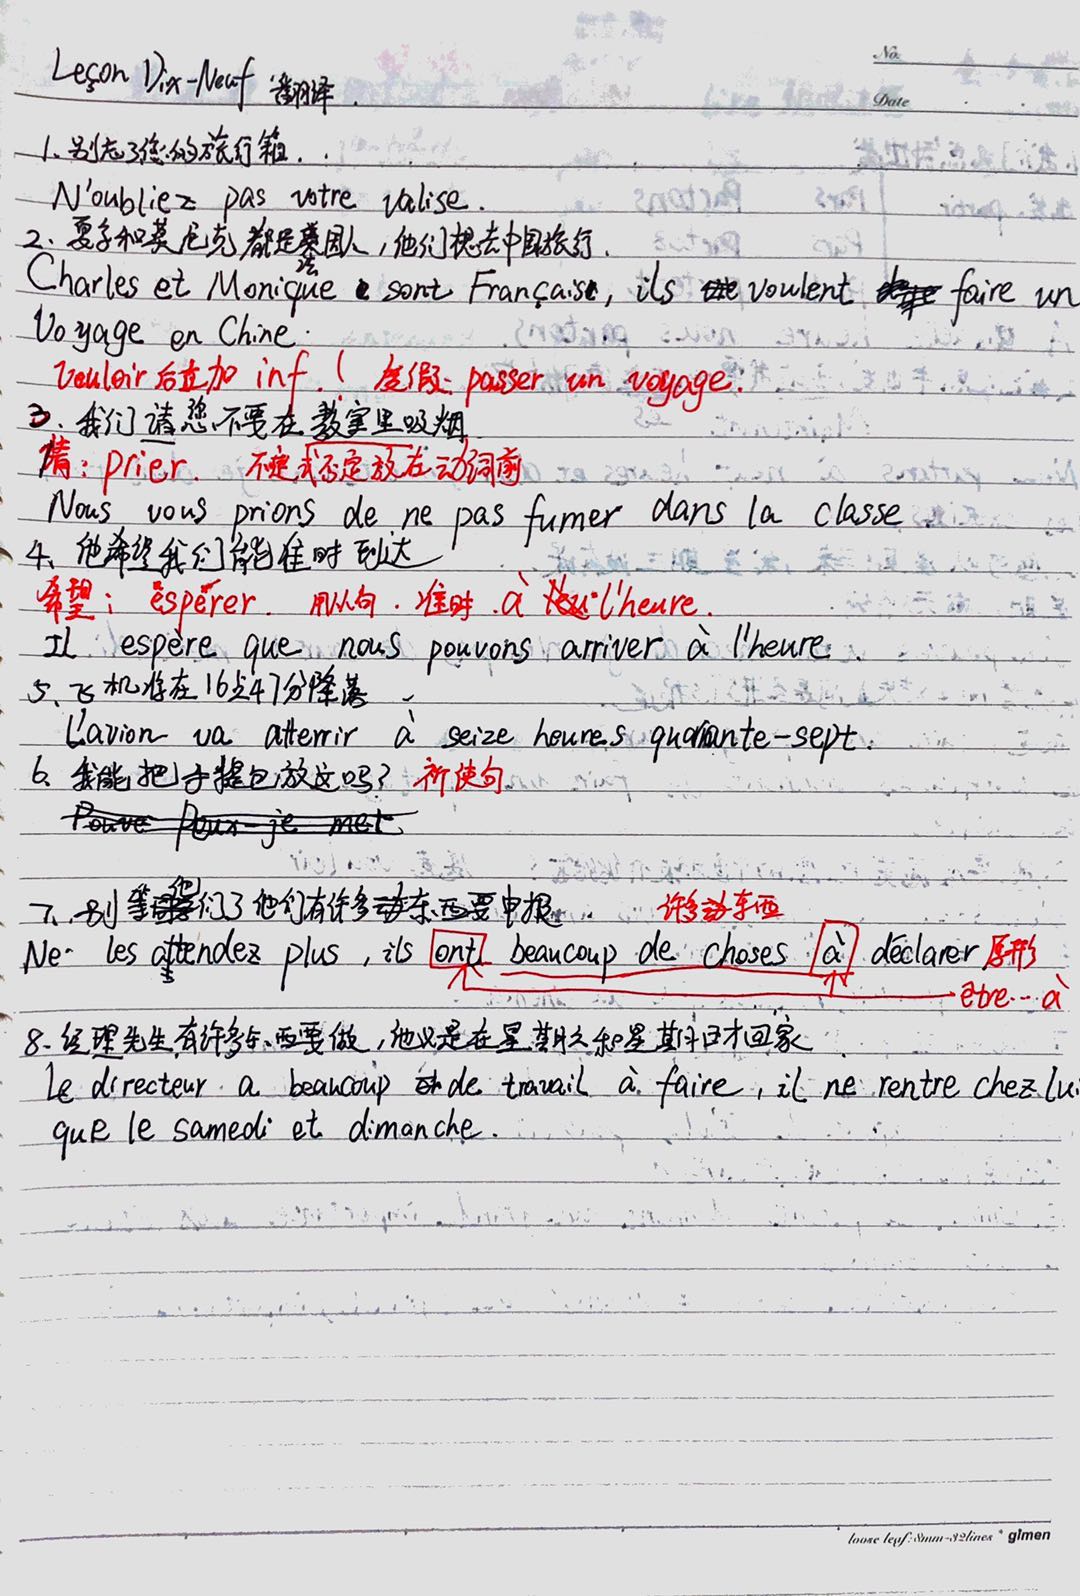 No.
Leçon Dix-Neuf 翻译.
Date
1、别忘了您的旅行箱.
N'oubliez pas votre valise.
2、夏尔和莫尼克都是法国人,他们想去中国旅行.
Charles et Monique sont Français, ils voulent faire un
Voyage en Chine.
Vouloir 后直加 inf.! 度假: passer un voyage.
3、我们请您不要在教室里吸烟
请: prier. 不定式否定放在动词前
Nous vous prions de ne pas fumer dans la classe.
4、他希望我们能准时到达
希望: espérer. 用从句. 准时. à l'heure.
Il espère que nous pouvons arriver à l'heure.
5、飞机将在16点47分降落
L'avion va atterrir à seize heures quarante-sept.
6、我能把手提包放这吗? 祈使句
Peux-je met
7、别等他们了他们有许多东西要申报. 许多东西
Ne les attendez plus, ils ont beaucoup de choses à déclarer 原形
être... à
8、经理先生有许多东西要做,他只是在星期六和星期日才回家.
Le directeur a beaucoup de travail à faire, il ne rentre chez lui
que le samedi et dimanche.
loose leaf:8mm-32lines * gimen